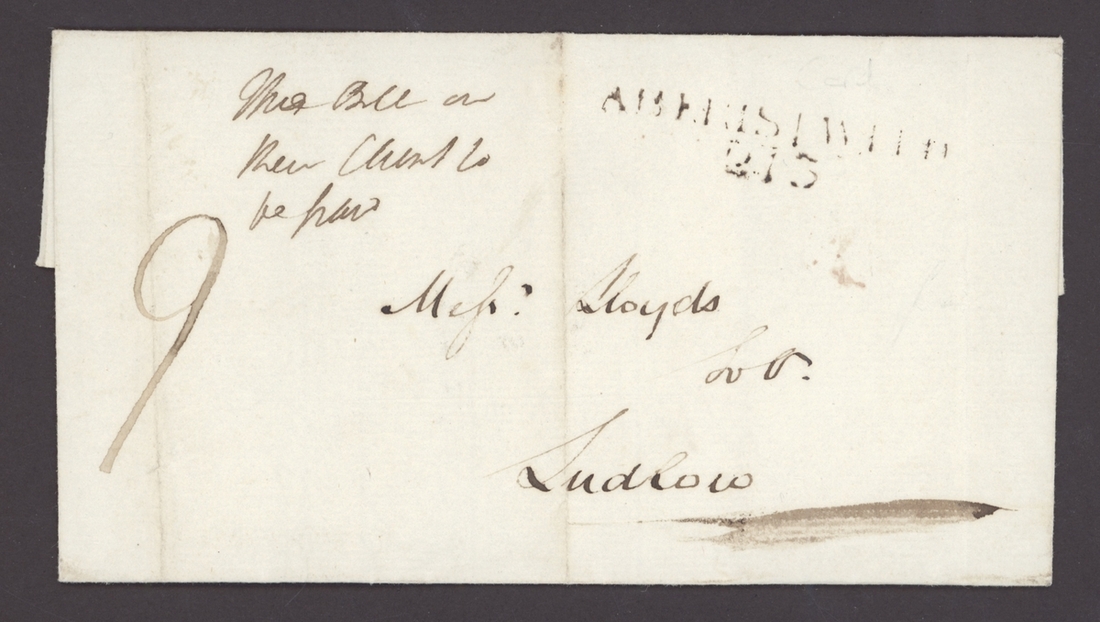 Their Bill on
their Client to
be paid
ABERISTWITH
213
9
Messrs. Lloyds
Solrs.
Ludlow